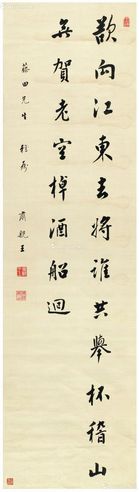 欲向江東去將誰共舉杯稽山
無賀老空棹酒船迴
藤田先生
肅親王